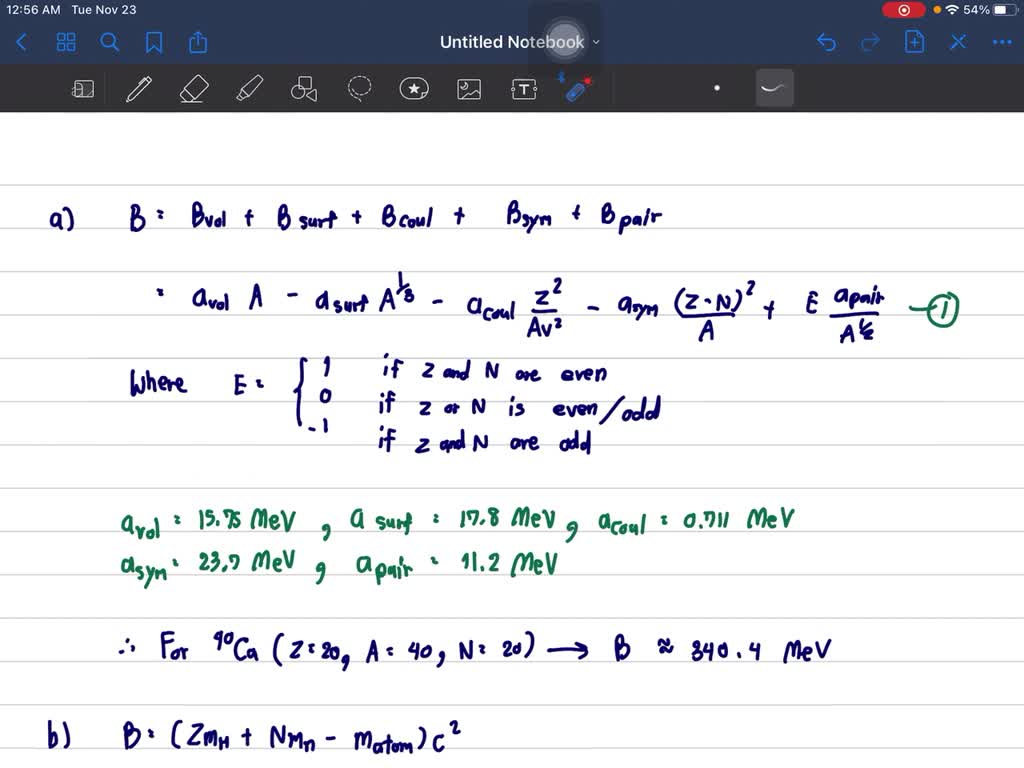 12:56 AM Tue Nov 23 54%
Untitled Notebook
T
a) B = B_vol + B_surf + B_coul + B_sym + B_pair
= a_vol A - a_surf A^1/3 - a_coul Z^2/Av^2 - a_sym (Z-N)^2/A + E a_pair/A^1/2 - ①
Where E = { 1 if Z and N are even
0 if Z or N is even/odd
-1 if Z and N are odd
a_vol = 15.75 MeV, a_surf = 17.8 MeV, a_coul = 0.711 MeV
a_sym = 23.7 MeV, a_pair = 11.2 MeV
∴ For ^40Ca (Z=20, A=40, N=20) → B ≈ 340.4 MeV
b) B = (Zm_H + Nm_n - m_atom)c^2